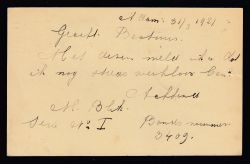 A'dam. 31/3 1921
Geacht Bestuur.
Met dezen meld ik U dat
ik nog steeds werkloos ben.
Serie No I
Bondsnummer
3409.